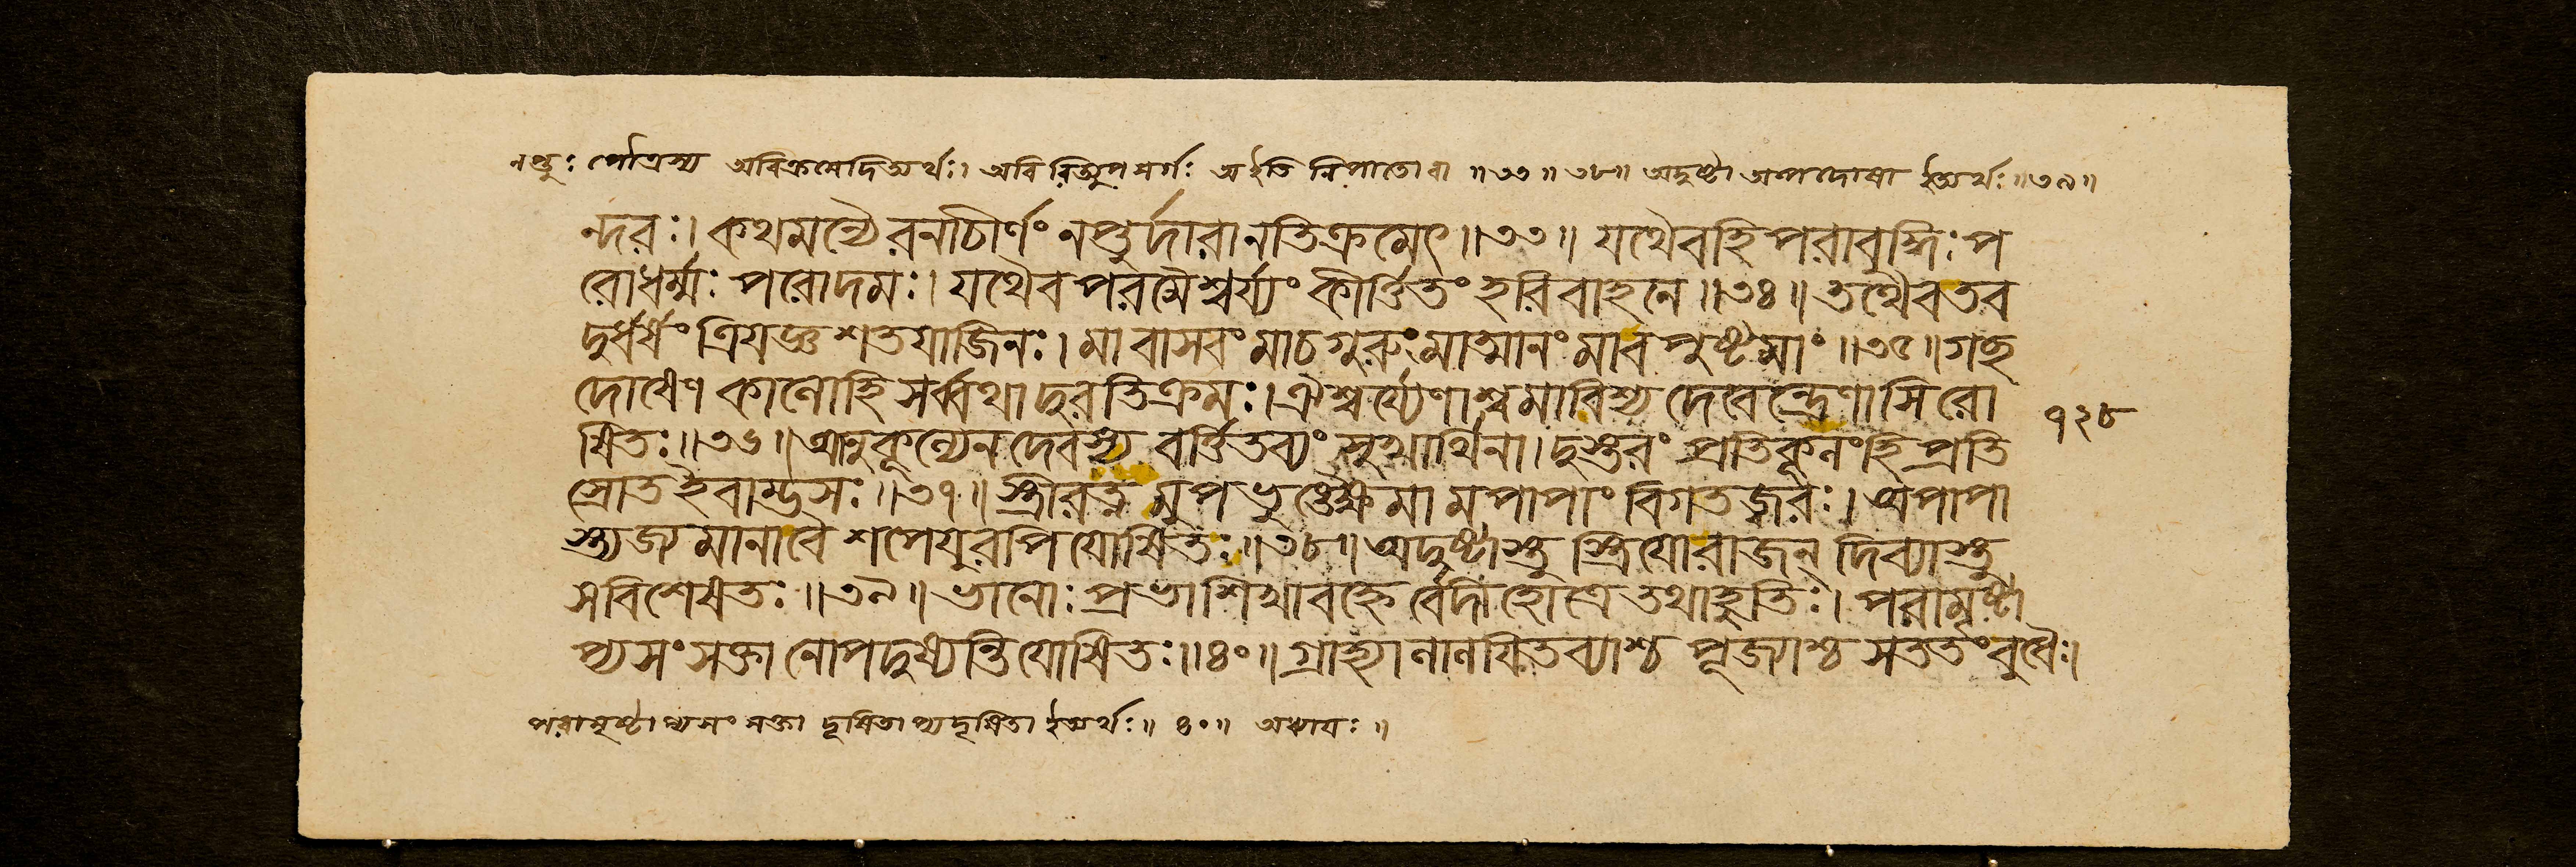 নপ্তুঃ পৌত্রস্য অবিক্রমেদিত্যর্থঃ। অবি রিত্যুপসর্গঃ অ ইতি নিপাতো বা ॥৩৩॥ ৩৮॥ অদুষ্টা অল্পদোষা ইত্যর্থঃ॥৩৯॥
ন্দরঃ। কথমন্যৈরনাচীর্ণং নপ্তুর্দারানতিক্রমেৎ॥৩৩॥ যথৈবহিপরাবুদ্ধিঃপ
রোধর্ম্মঃ পরোদমঃ। যথৈব পরমৈশ্বর্য্যং কীর্ত্তিতং হরিবাহনে॥৩৪॥ তথৈবতব
দুর্ধর্ষং ত্রিযজ্ঞশতযাজিনঃ। মা বাসবং মাচগুরুং মাত্মানং মাব পুষ্টমাং॥৩৫॥ গচ্ছ
দোষেণ কালোহি সর্ব্বথা দুরতিক্রমঃ। ঐশ্বর্য্যেণাশ্বমাবিশ্য দেবেন্দ্রেণাসি রো
ষিতঃ॥৩৬॥ আনুকূল্যেন দেবস্য বর্ত্তিতব্যং সুখার্থিনা। দুস্তরং প্রতিকূলংহি প্রতি
স্রোত ইবাম্ভসঃ॥৩৭॥ স্ত্রীরত্ন মুপভুংক্ষ্বৈমা মপাপাং বিগতজ্বরঃ। অপাপা
স্ত্যজ্যমানাবৈ শপেযুরপি যোষিতঃ॥৩৮॥ অদুষ্টাস্তু স্ত্রিযোরাজন্ দিব্যাস্তু
সবিশেষতঃ॥৩৯॥ ভানোঃ প্রভাশিখাবহ্নে র্বেদীহোত্রে তথাহুতিঃ। পরামৃষ্টা
প্যসংসক্তা নোপদুষ্যন্তি যোষিতঃ॥৪০॥ গ্রাহ্যা লালযিতব্যাশ্চ পূজ্যাশ্চ সততং বুধৈঃ।
১২৮
পরামৃষ্টা প্যসং সক্তা দূষিতা প্যদূষিতা ইত্যর্থঃ॥ ৪০॥